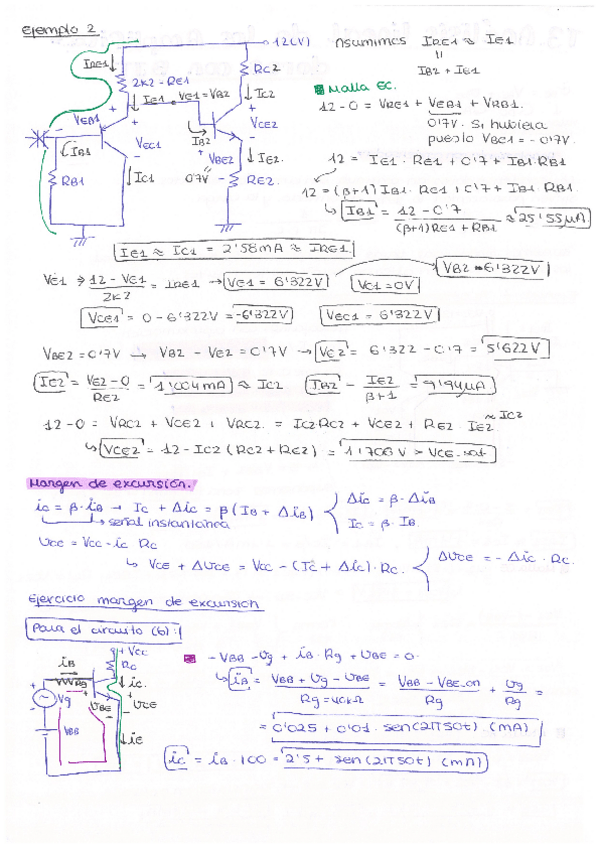 Ejemplo 2
12(V)
Asumimos IRE1 ≈ IE1
||
IB2 + IE1
IRE1
2K2 - RE1
RC2
IE1
VE1 = VB2
IC2
VEB1
VEC1
VCE2
IB1
IB2
VBE2
IE2
RB1
IC1
0'7V
RE2
Malla EC.
12 - 0 = VRE1 + VEB1 + VRB1.
0'7V. Si hubiera
puesto VBE1 = - 0'7V.
12 = IE1 · RE1 + 0'7 + IB1·RB1
12 = (β+1) IB1 · RE1 + 0'7 + IB1 · RB1.
↳ IB1 = (12 - 0'7) / ((β+1)RE1 + RB1) ≈ 25'55μA
IE1 ≈ IC1 = 2'58mA ≈ IRE1
VE1 ⇒ (12 - VE1) / 2K2 = IRE1 → VE1 = 6'322V VC1 = 0V VB2 = 6'322V
VCE1 = 0 - 6'322V = -6'322V VEC1 = 6'322V
VBE2 = 0'7V → VB2 - VE2 = 0'7V → VE2 = 6'322 - 0'7 = 5'622V
IE2 = (VE2 - 0) / RE2 = 1'004mA ≈ IC2 IB2 = IE2 / (β+1) = 9'94μA
12 - 0 = VRC2 + VCE2 + VRC2 = IC2·RC2 + VCE2 + RE2 · IE2 ≈ IC2
↳ VCE2 = 12 - IC2 (RC2 + RE2) = 1'706V > VCE sat
Margen de excursión.
ic = β · iB → IC + Δic = β (IB + ΔiB) { Δic = β · ΔiB
IC = β · IB
señal instantánea
VCE = VCC - ic RC
↳ VCE + ΔVCE = VCC - (IC + Δic) · RC. { ΔVCE = - Δic · RC.
Ejercicio margen de excursion
Para el circuito (b):
+ VCC
RC
iB
ic
Rg
Vg
VBE
VCE
VBB
iE
- VBB - Vg + iB · Rg + VBE = 0.
↳ iB = (VBB + Vg - VBE) / (Rg = 40kΩ) = (VBB - VBE,on) / Rg + Vg / Rg =
= 0'025 + 0'01 · sen(2π50t) (mA)
ic = iB · 100 = 2'5 + sen(2π50t) (mA)